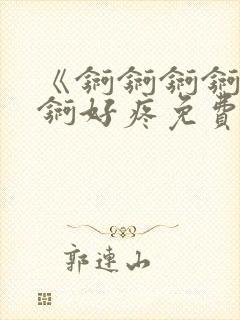 《锕锕锕锕
锕好疼免費
郭連山